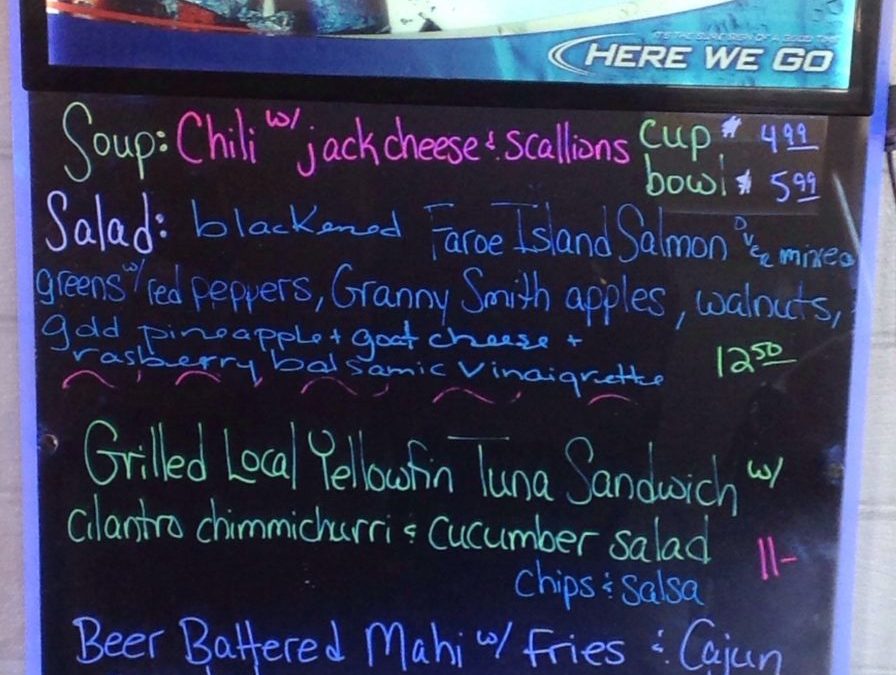 IT'S THE SURE SIGN OF A GOOD TIME
HERE WE GO
Soup: Chili w/ jack cheese & scallions cup $ 4.99
bowl $ 5.99
Salad: blackened Faroe Island Salmon over mixed
greens w/ red peppers, Granny Smith apples, walnuts,
gold pineapple + goat cheese +
rasberry balsamic vinaigrette 12.50
Grilled Local Yellowfin Tuna Sandwich w/
cilantro chimmichurri & cucumber salad 11-
chips & salsa
Beer Battered Mahi w/ Fries & Cajun